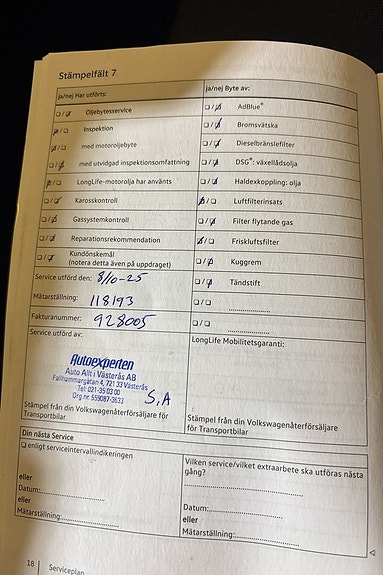 Stämpelfält 7
ja/nej Har utförts:
Oljebytesservice
Inspektion
med motoroljebyte
med utvidgad inspektionsomfattning
LongLife-motorolja har använts
Karosskontroll
Gassystemkontroll
Reparationsrekommendation
Kundönskemål
(notera detta även på uppdraget)
Service utförd den: 8/10-25
Mätarställning: 118193
Fakturanummer: 928005
Service utförd av:
Autoexperten
Auto Allt i Västerås AB
Fallhammargatan 4, 721 33 Västerås
Tel: 021-35 03 00
Org nr. 559087-3633
S,A
Stämpel från din Volkswagenåterförsäljare för
Transportbilar
ja/nej Byte av:
AdBlue®
Bromsvätska
Dieselbränslefilter
DSG®: växellådsolja
Haldexkoppling: olja
Luftfilterinsats
Filter flytande gas
Friskluftsfilter
Kuggrem
Tändstift
LongLife Mobilitetsgaranti:
Stämpel från din Volkswagenåterförsäljare
för Transportbilar
Din nästa Service
enligt serviceintervallindikeringen
eller
Datum:
eller
Mätarställning:
Vilken service/vilket extraarbete ska utföras nästa
gång?
Datum:
eller
Mätarställning:
18 Serviceplan